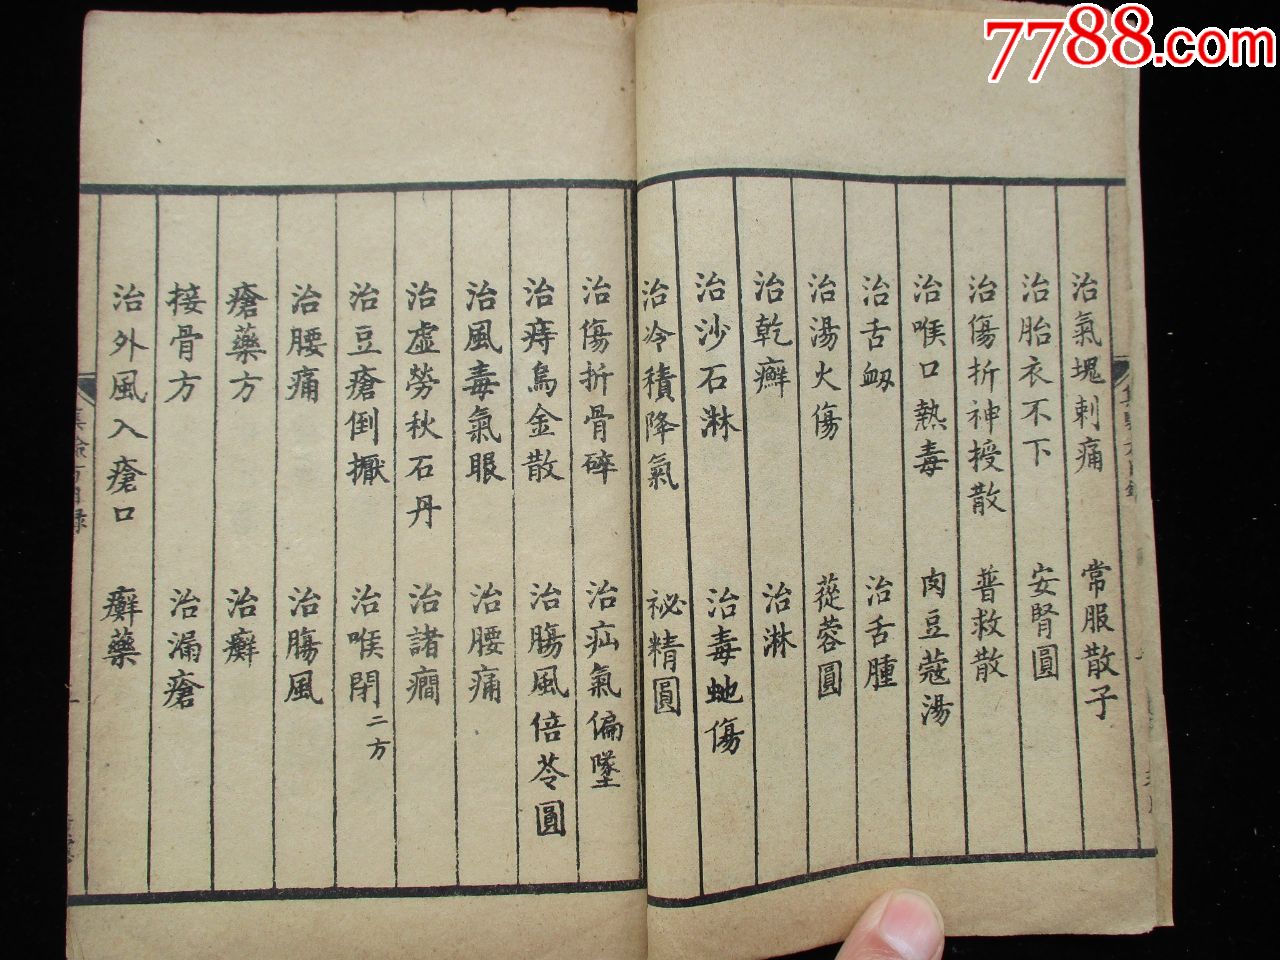 7788.com
治氣塊刺痛 常服散子
治胎衣不下 安腎圓
治傷折神授散 普救散
治喉口熱毒 肉豆蔻湯
治舌衂 治舌腫
治湯火傷 蓯蓉圓
治乾癬 治淋
治沙石淋 治毒虵傷
治冷積降氣 祕精圓
治傷折骨碎 治疝氣偏墜
治痔烏金散 治腸風倍苓圓
治風毒氣眼 治腰痛
治虛勞秋石丹 治諸癎
治豆瘡倒擫 治喉閉二方
治腰痛 治腸風
瘡藥方 治癬
接骨方 治漏瘡
治外風入瘡口 癬藥
集驗方目錄